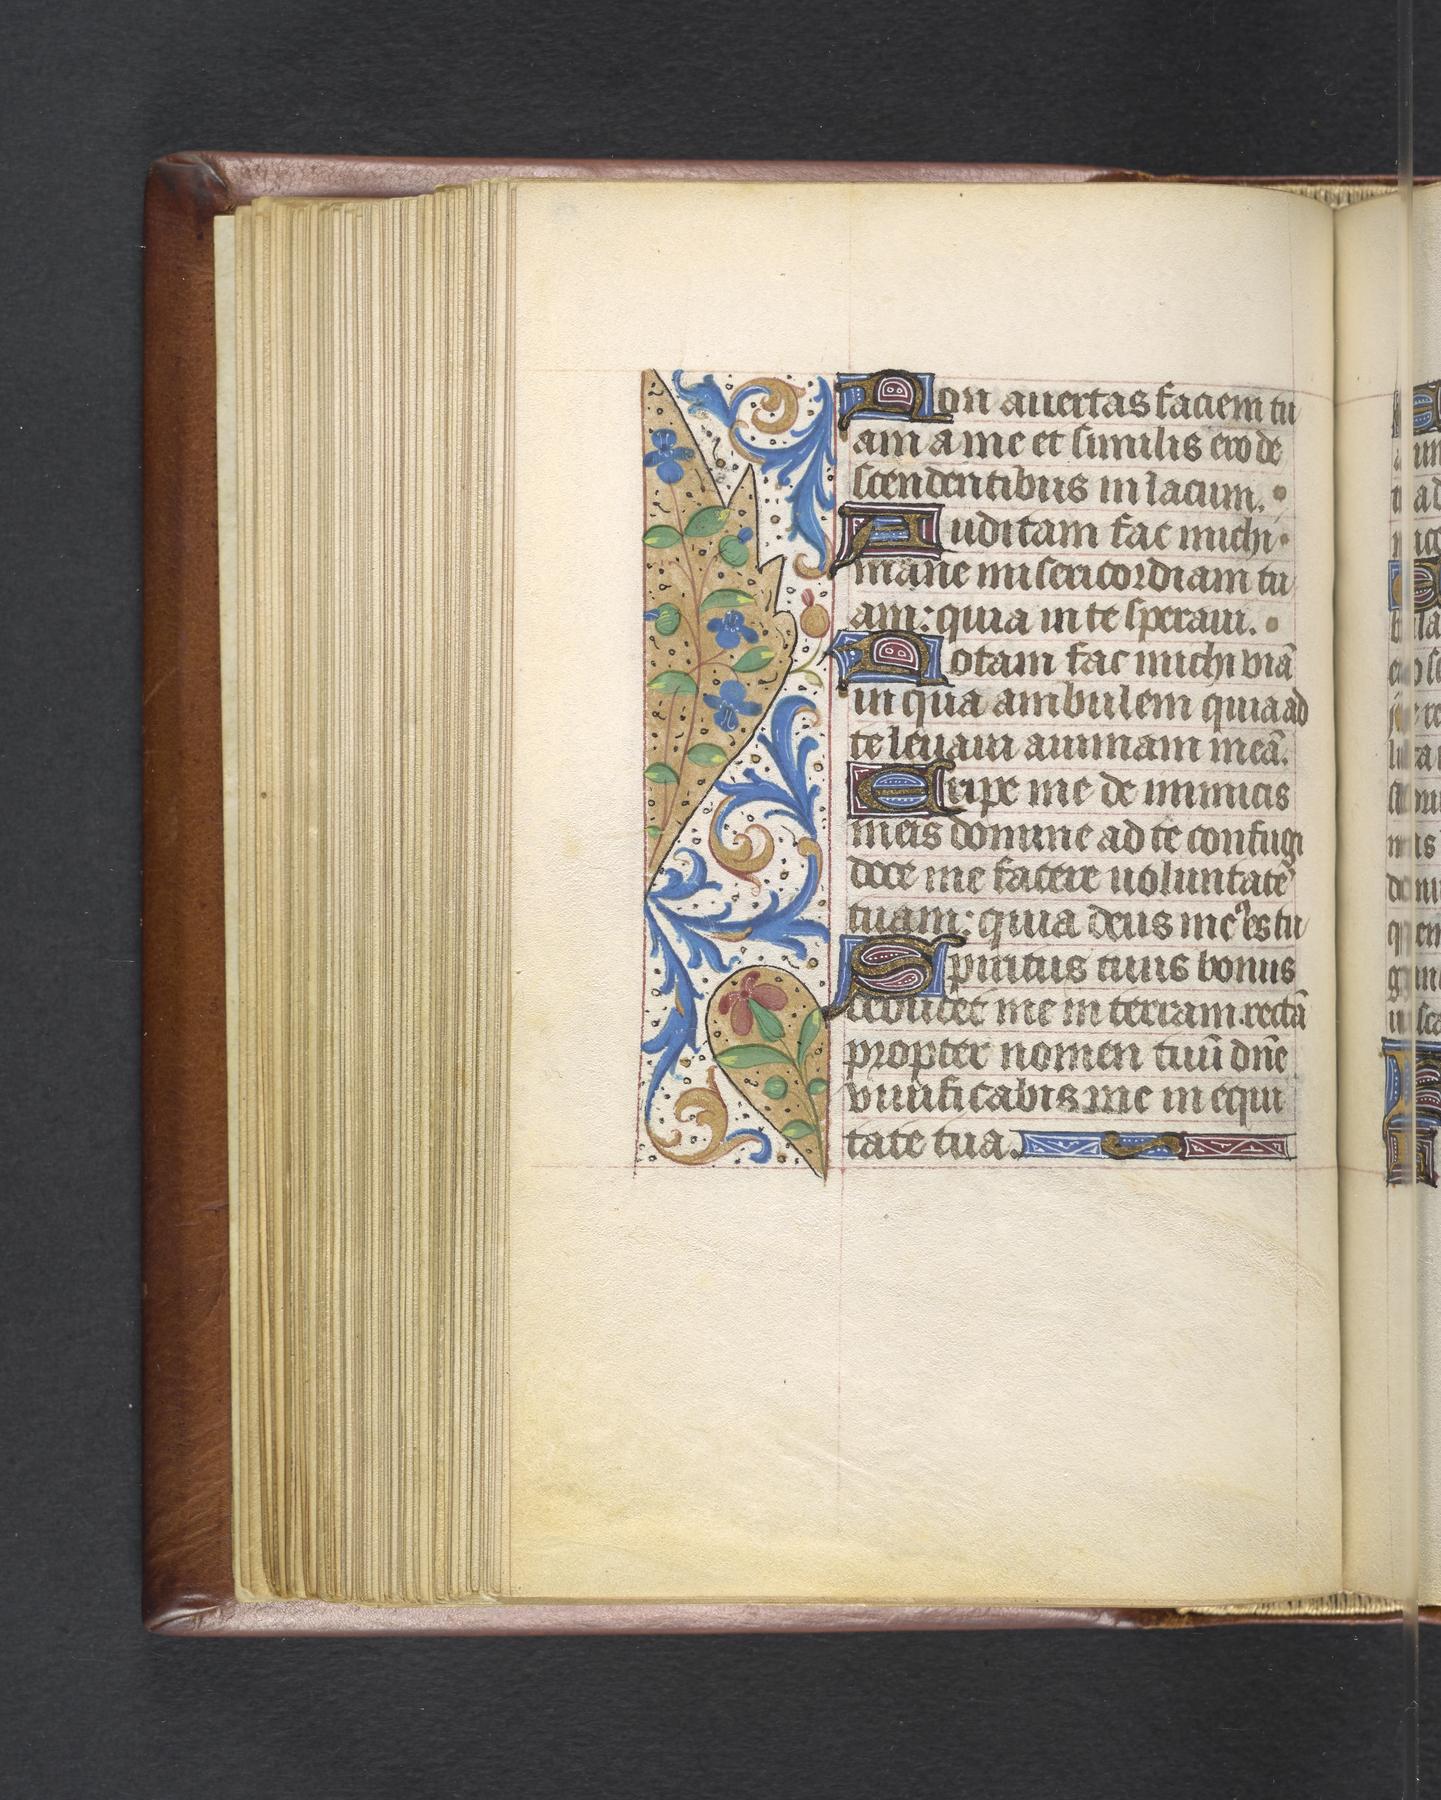 Non auertas faciem tu
am a me et similis ero de
scendentibus in lacum.
Auditam fac michi
mane misericordiam tu
am: quia in te speraui.
Notam fac michi viā
in qua ambulem quia ad
te leuaui animam meā.
Eripe me de inimicis
meis domine ad te confugi
doce me facere uoluntatē
tuam: quia deus meꝰ es tu
Spiritus tuus bonus
deducet me in terram rectā
propter nomen tuū dn̄e
viuificabis me in equi
tate tua.